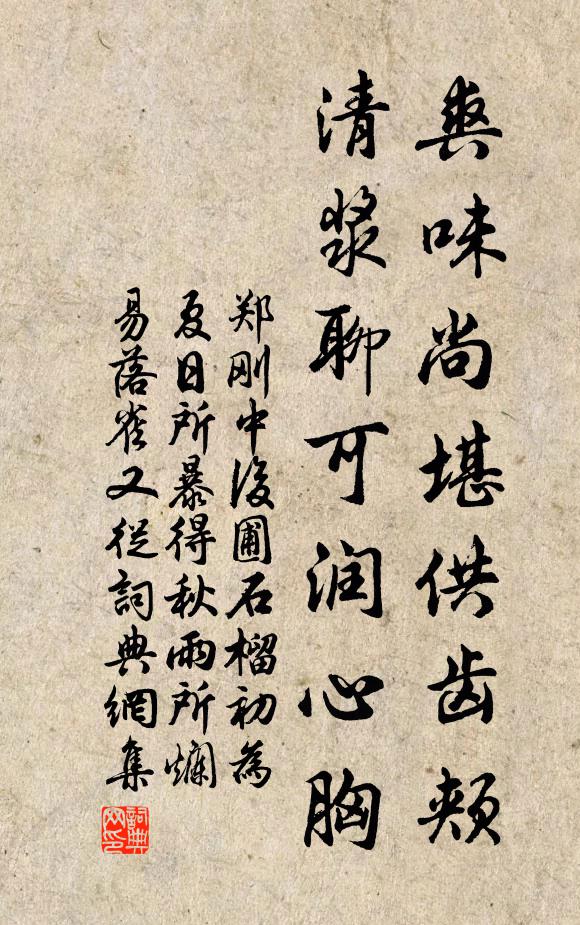 爽味尚堪供齿颊
清浆聊可润心胸
郑刚中後圃石榴初為
夏日所暴得秋雨所爛
易落雀又從詞典網集
詞典网印